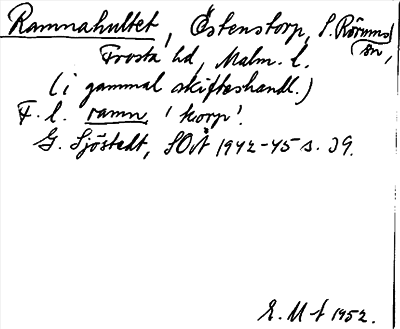 Ramnahultet, Östenstorp, S. Rörums sn,
Frosta hd, Malm. l.
(i gammal skifteshandl.)
F. l. ramn 'korp'.
G. Sjöstedt, SOÅ 1942-45 s. 39.
E. M-t 1952.